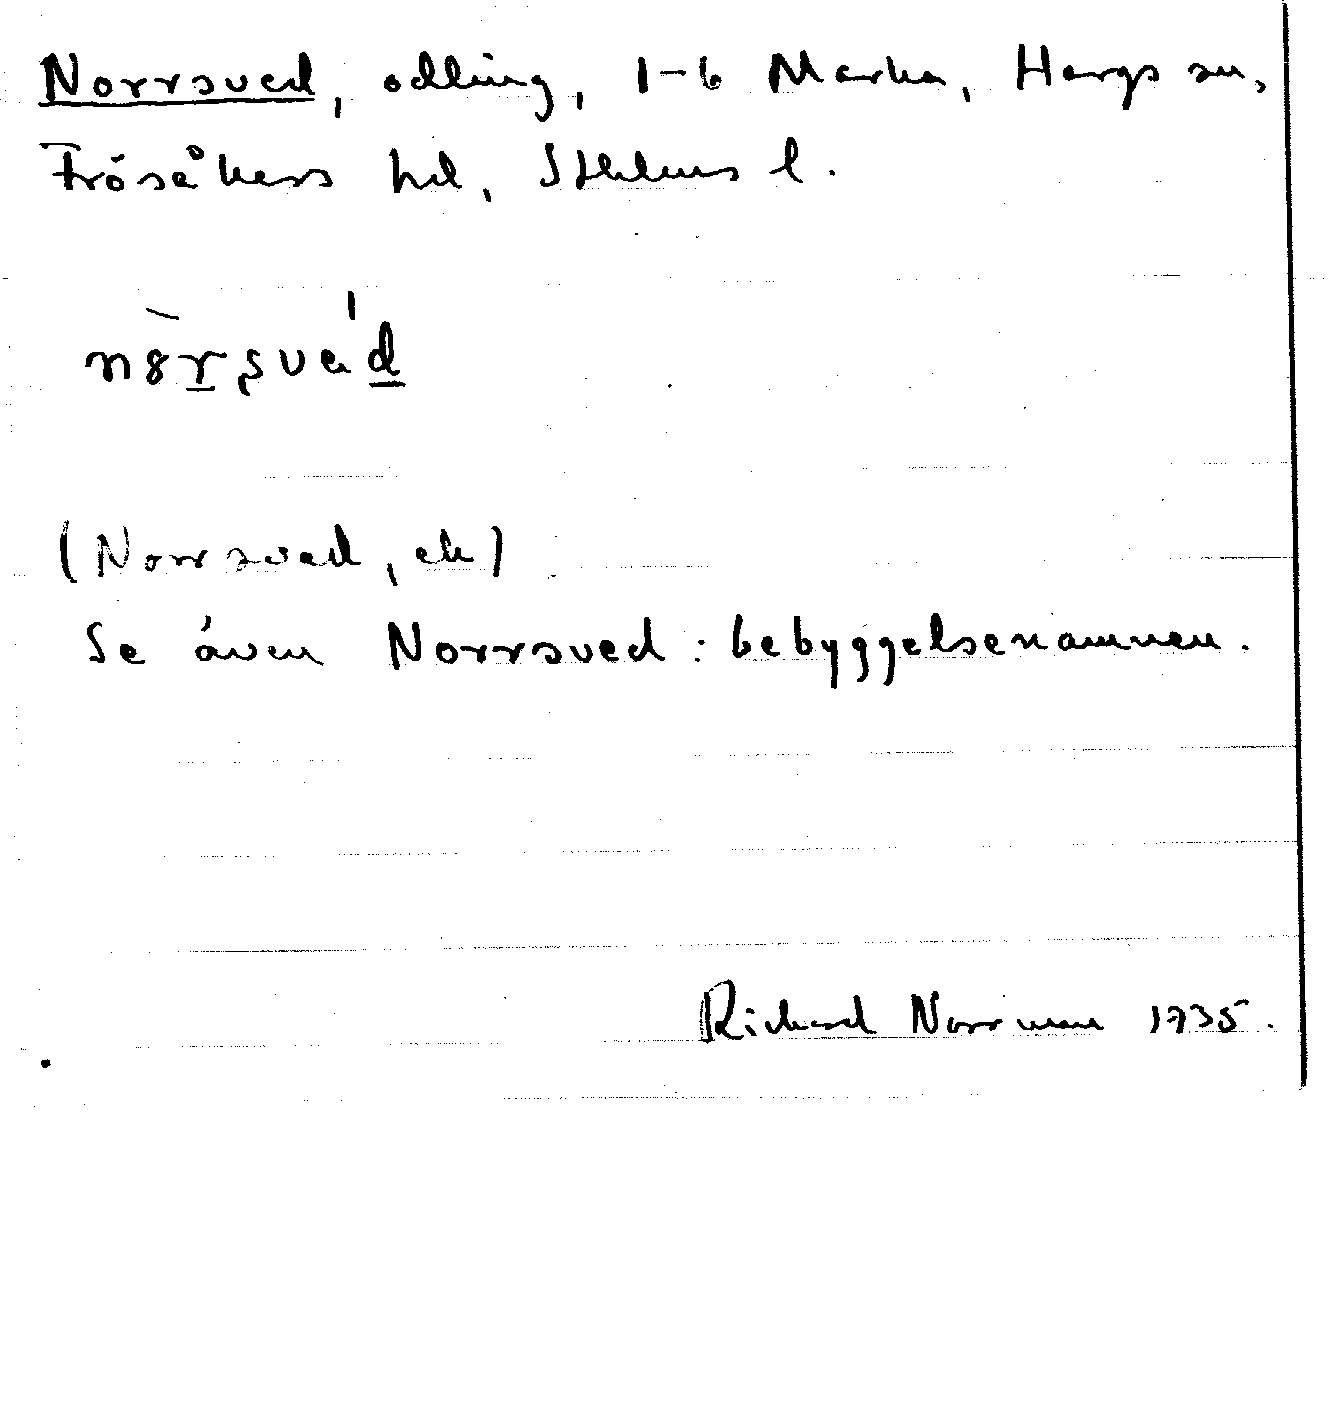 Norrsved, odling, 1-6 Marka, Hargs sn,
Frösåkers hd, Sthlms l.
(Norrsved, ek)
Se även Norrsved: bebyggelsenamnen.
Richard Norrman 1935.